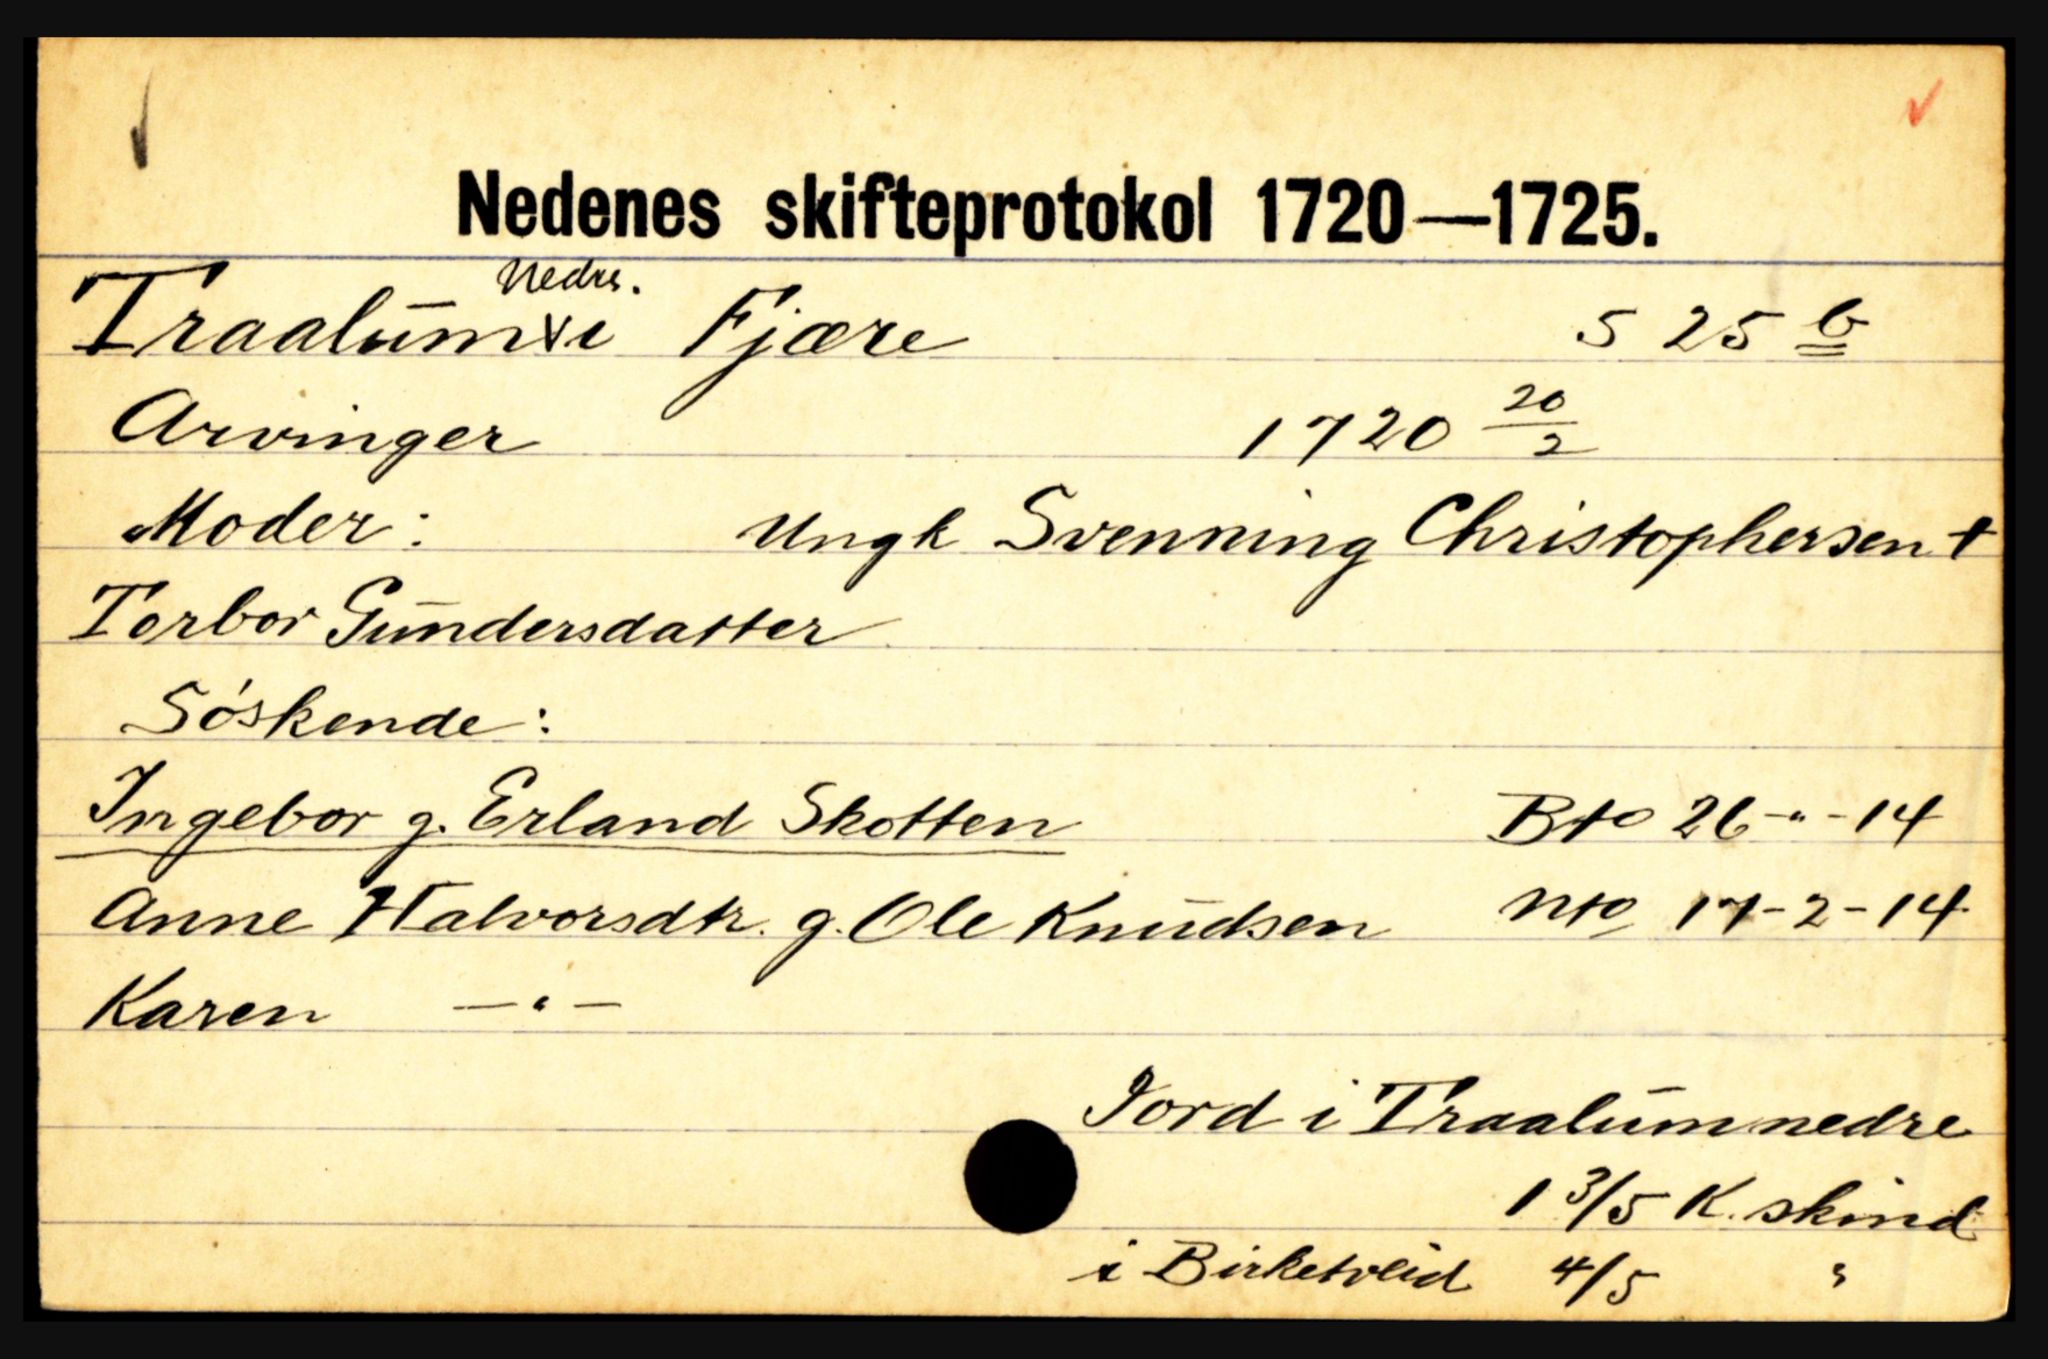 Nedenes skifteprotokol 1720—1725.
Nedre.
Traalum i Fjære S 25 b
Arvinger 1720 20/2
Moder: Ungk Svenning Christophersen †
Torbor Gundersdatter
Söskende:
Ingebor g. Erland Skotten Bto 26-"-14
Anne Halvorsdtr. g. Ole Knudsen Nto 17-2-14
Karen —"—
Jord i Traalum nedre
1 3/5 K. skind
i Birketveid 4/5 "